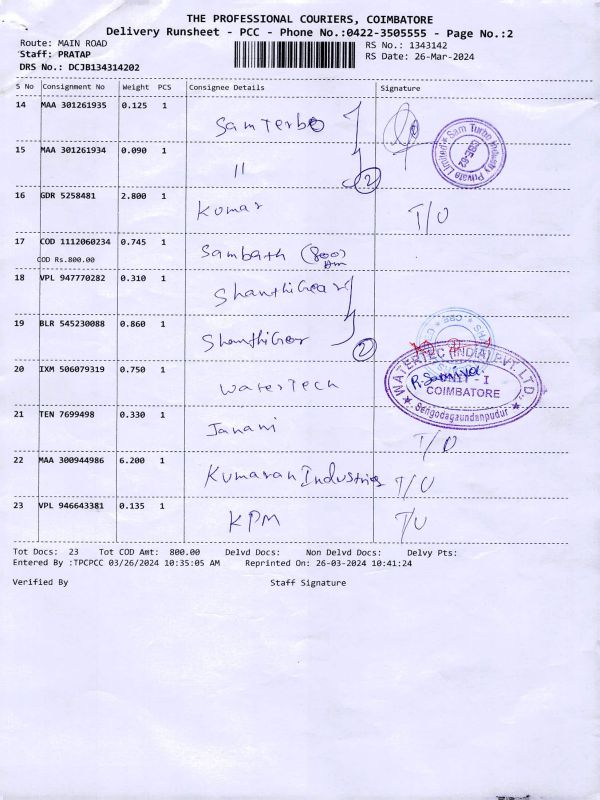 THE PROFESSIONAL COURIERS, COIMBATORE
Delivery Runsheet - PCC - Phone No.:0422-3505555 - Page No.:2
Route: MAIN ROAD RS No.: 1343142
Staff: PRATAP RS Date: 26-Mar-2024
DRS No.: DCJB134314202
S No Consignment No Weight PCS Consignee Details Signature
14 MAA 301261935 0.125 1 Sam Terbo
15 MAA 301261934 0.090 1 11
2
Sam Turbo Industry Private Limited
CBE-62
16 GDR 5258481 2.800 1 Kumar T/O
17 COD 1112060234 0.745 1 Sambath (800)
COD Rs.800.00
18 VPL 947770282 0.310 1 ShanthiGears
19 BLR 545230088 0.860 1 ShanthiGear
2
20 IXM 506079319 0.750 1 WaterTech
WATERTEC (INDIA) PVT. LTD.
UNIT - I
COIMBATORE
Sengodagaundanpudur
21 TEN 7699498 0.330 1 Janani T/O
22 MAA 300944986 6.200 1 Kumaran Industries T/O
23 VPL 946643381 0.135 1 KPM T/O
Tot Docs: 23 Tot COD Amt: 800.00 Delvd Docs: Non Delvd Docs: Delvy Pts:
Entered By :TPCPCC 03/26/2024 10:35:05 AM Reprinted On: 26-03-2024 10:41:24
Verified By Staff Signature